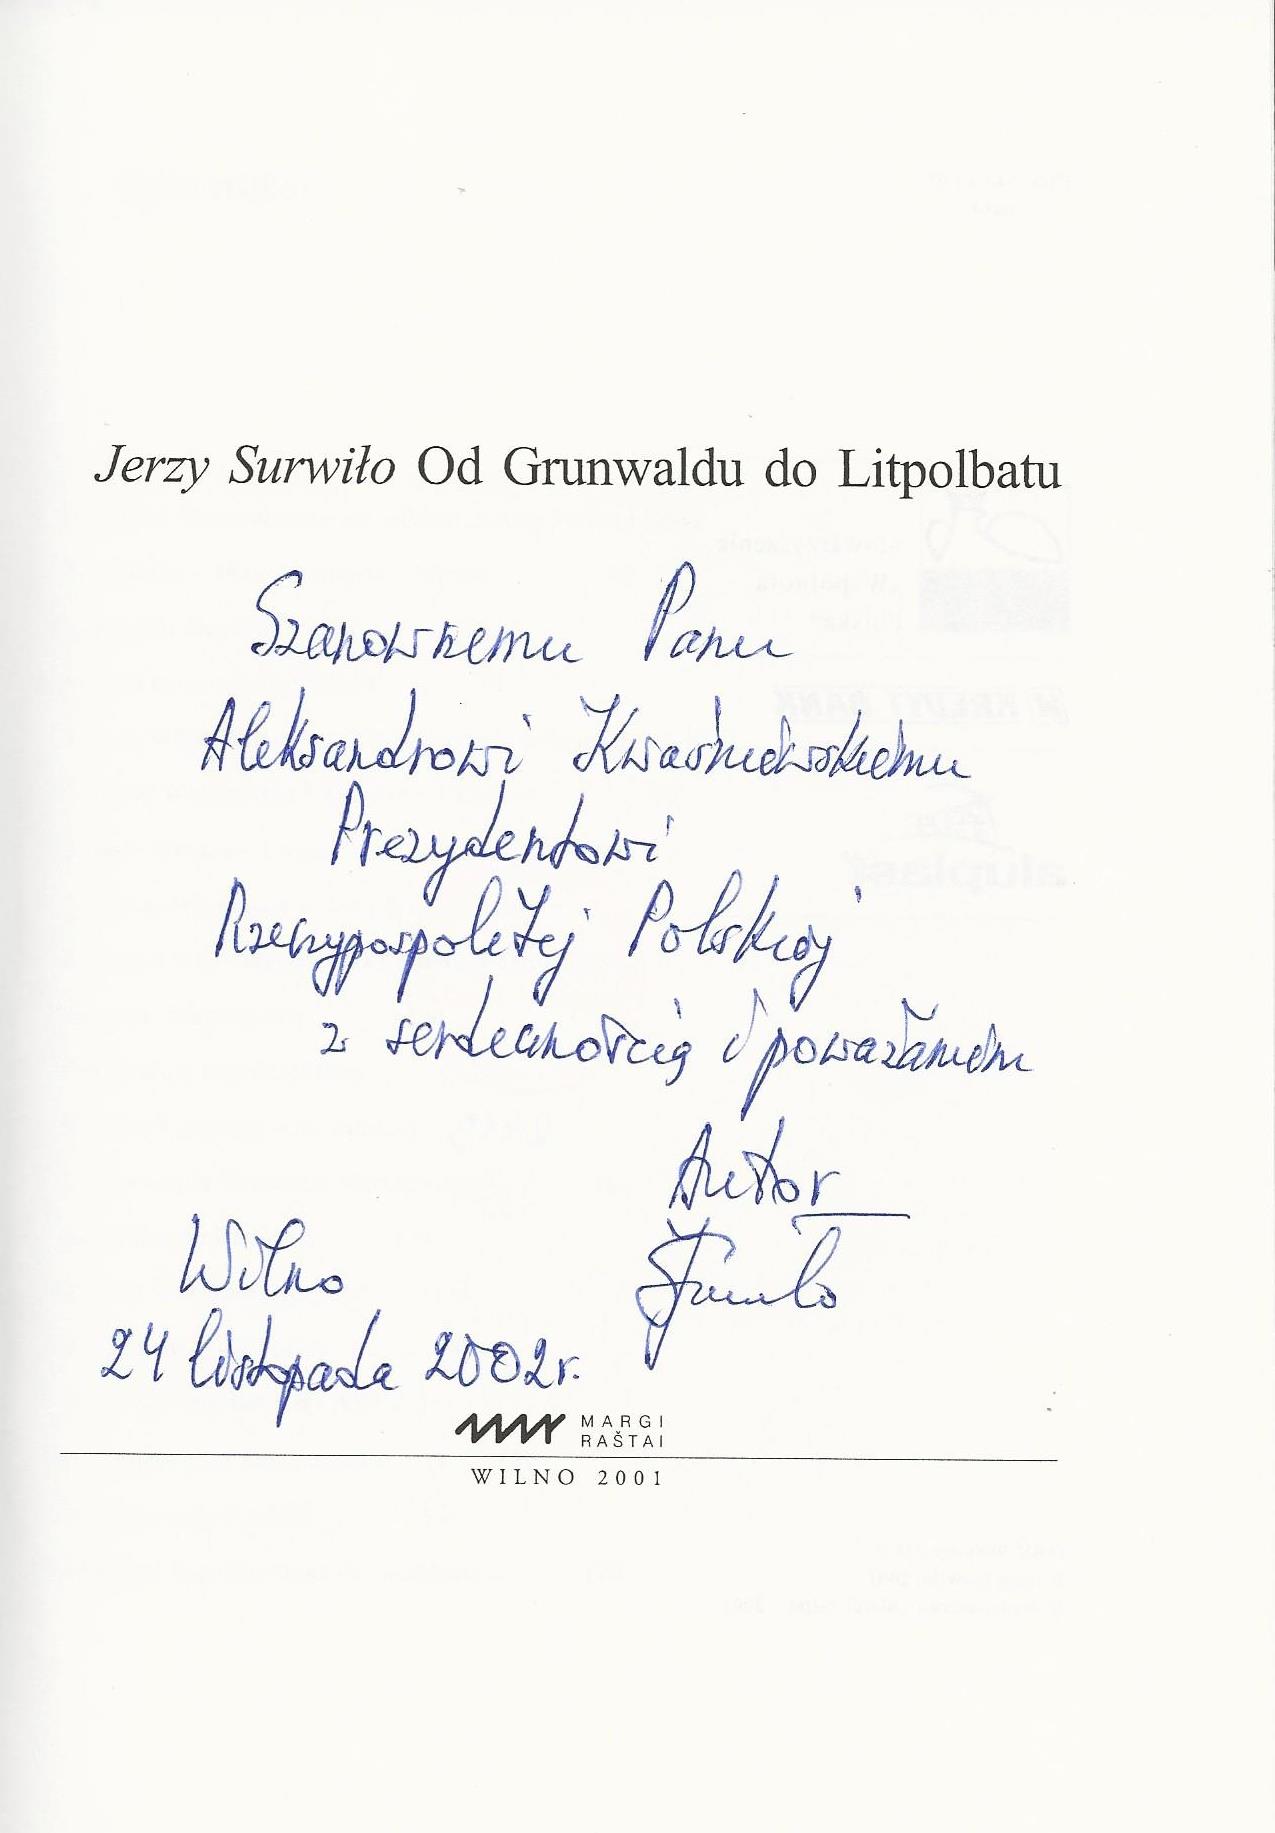 Jerzy Surwiło Od Grunwaldu do Litpolbatu
Szanownemu Panu
Aleksandrowi Kwaśniewskiemu
Prezydentowi
Rzeczypospolitej Polskiej
z serdecznością i poważaniem
Autor
Wilno
24 listopada 2002r.
MARGI
RAŠTAI
WILNO 2001